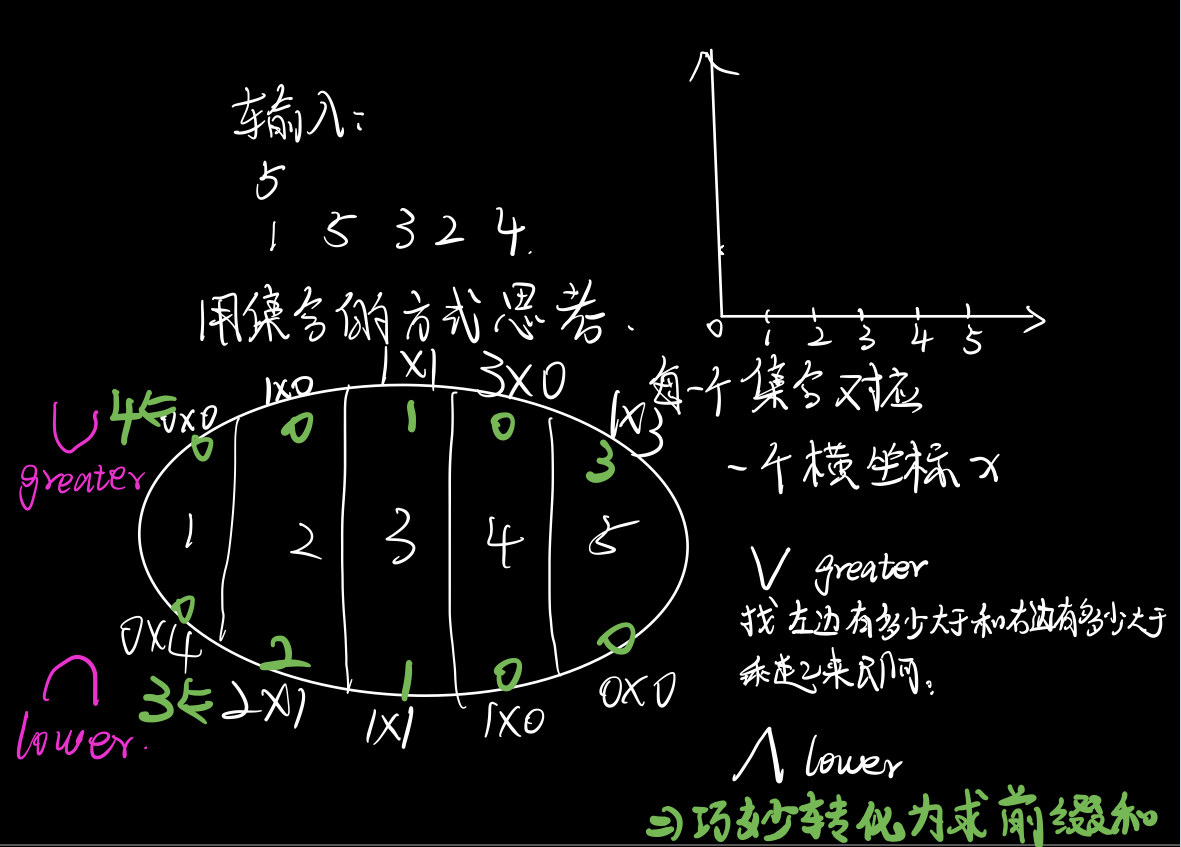 输入:
5
1 5 3 2 4.
用集合的方式思考.
0 1 2 3 4 5
每一个集合对应
一个横坐标x
4← 0x0 1x0 1x1 3x0 1x3
0 0 1 0 3
V greater
1 2 3 4 5
0 2 1 0 0
0x4 2x1 1x1 1x0 0x0
3←
∧ lower.
V greater
找左边有多少大于和右边有多少大于
乘起来即可。
∧ lower
⇒巧妙转化为求前缀和